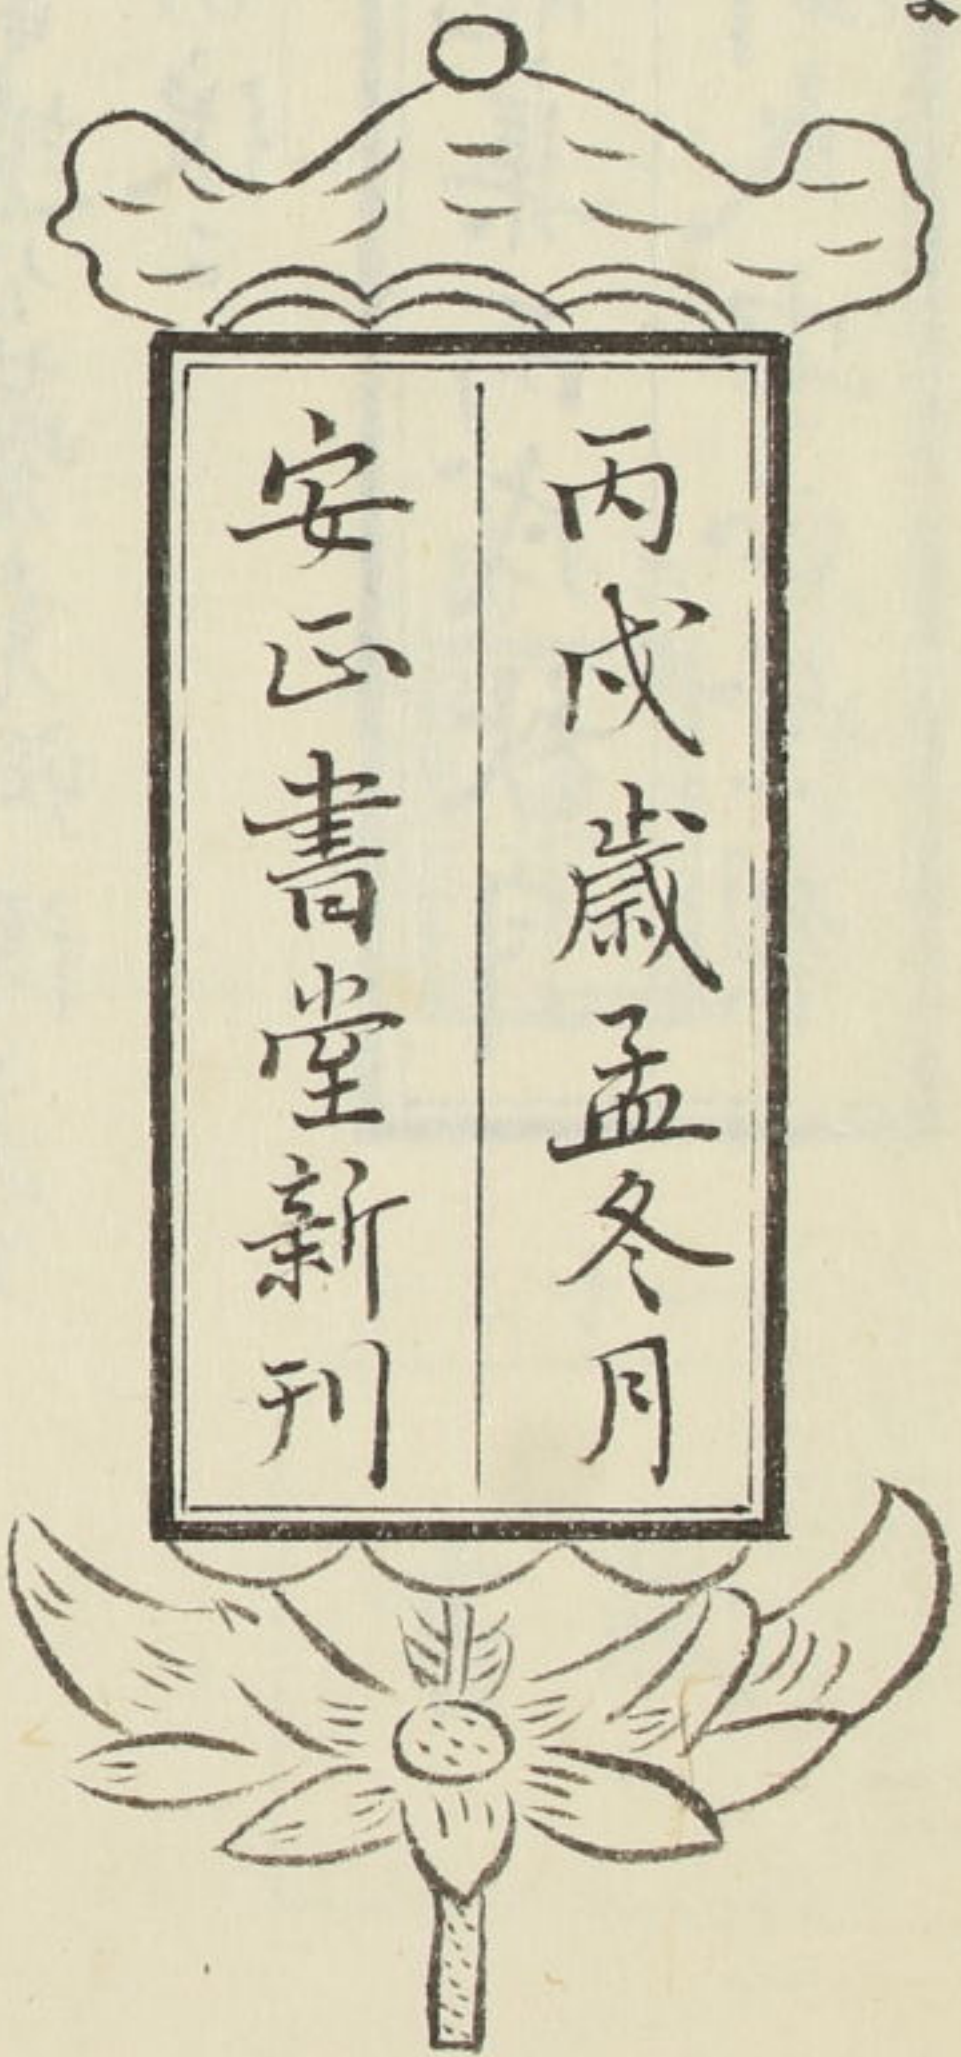 丙戌歲孟冬月
安正書堂新刊